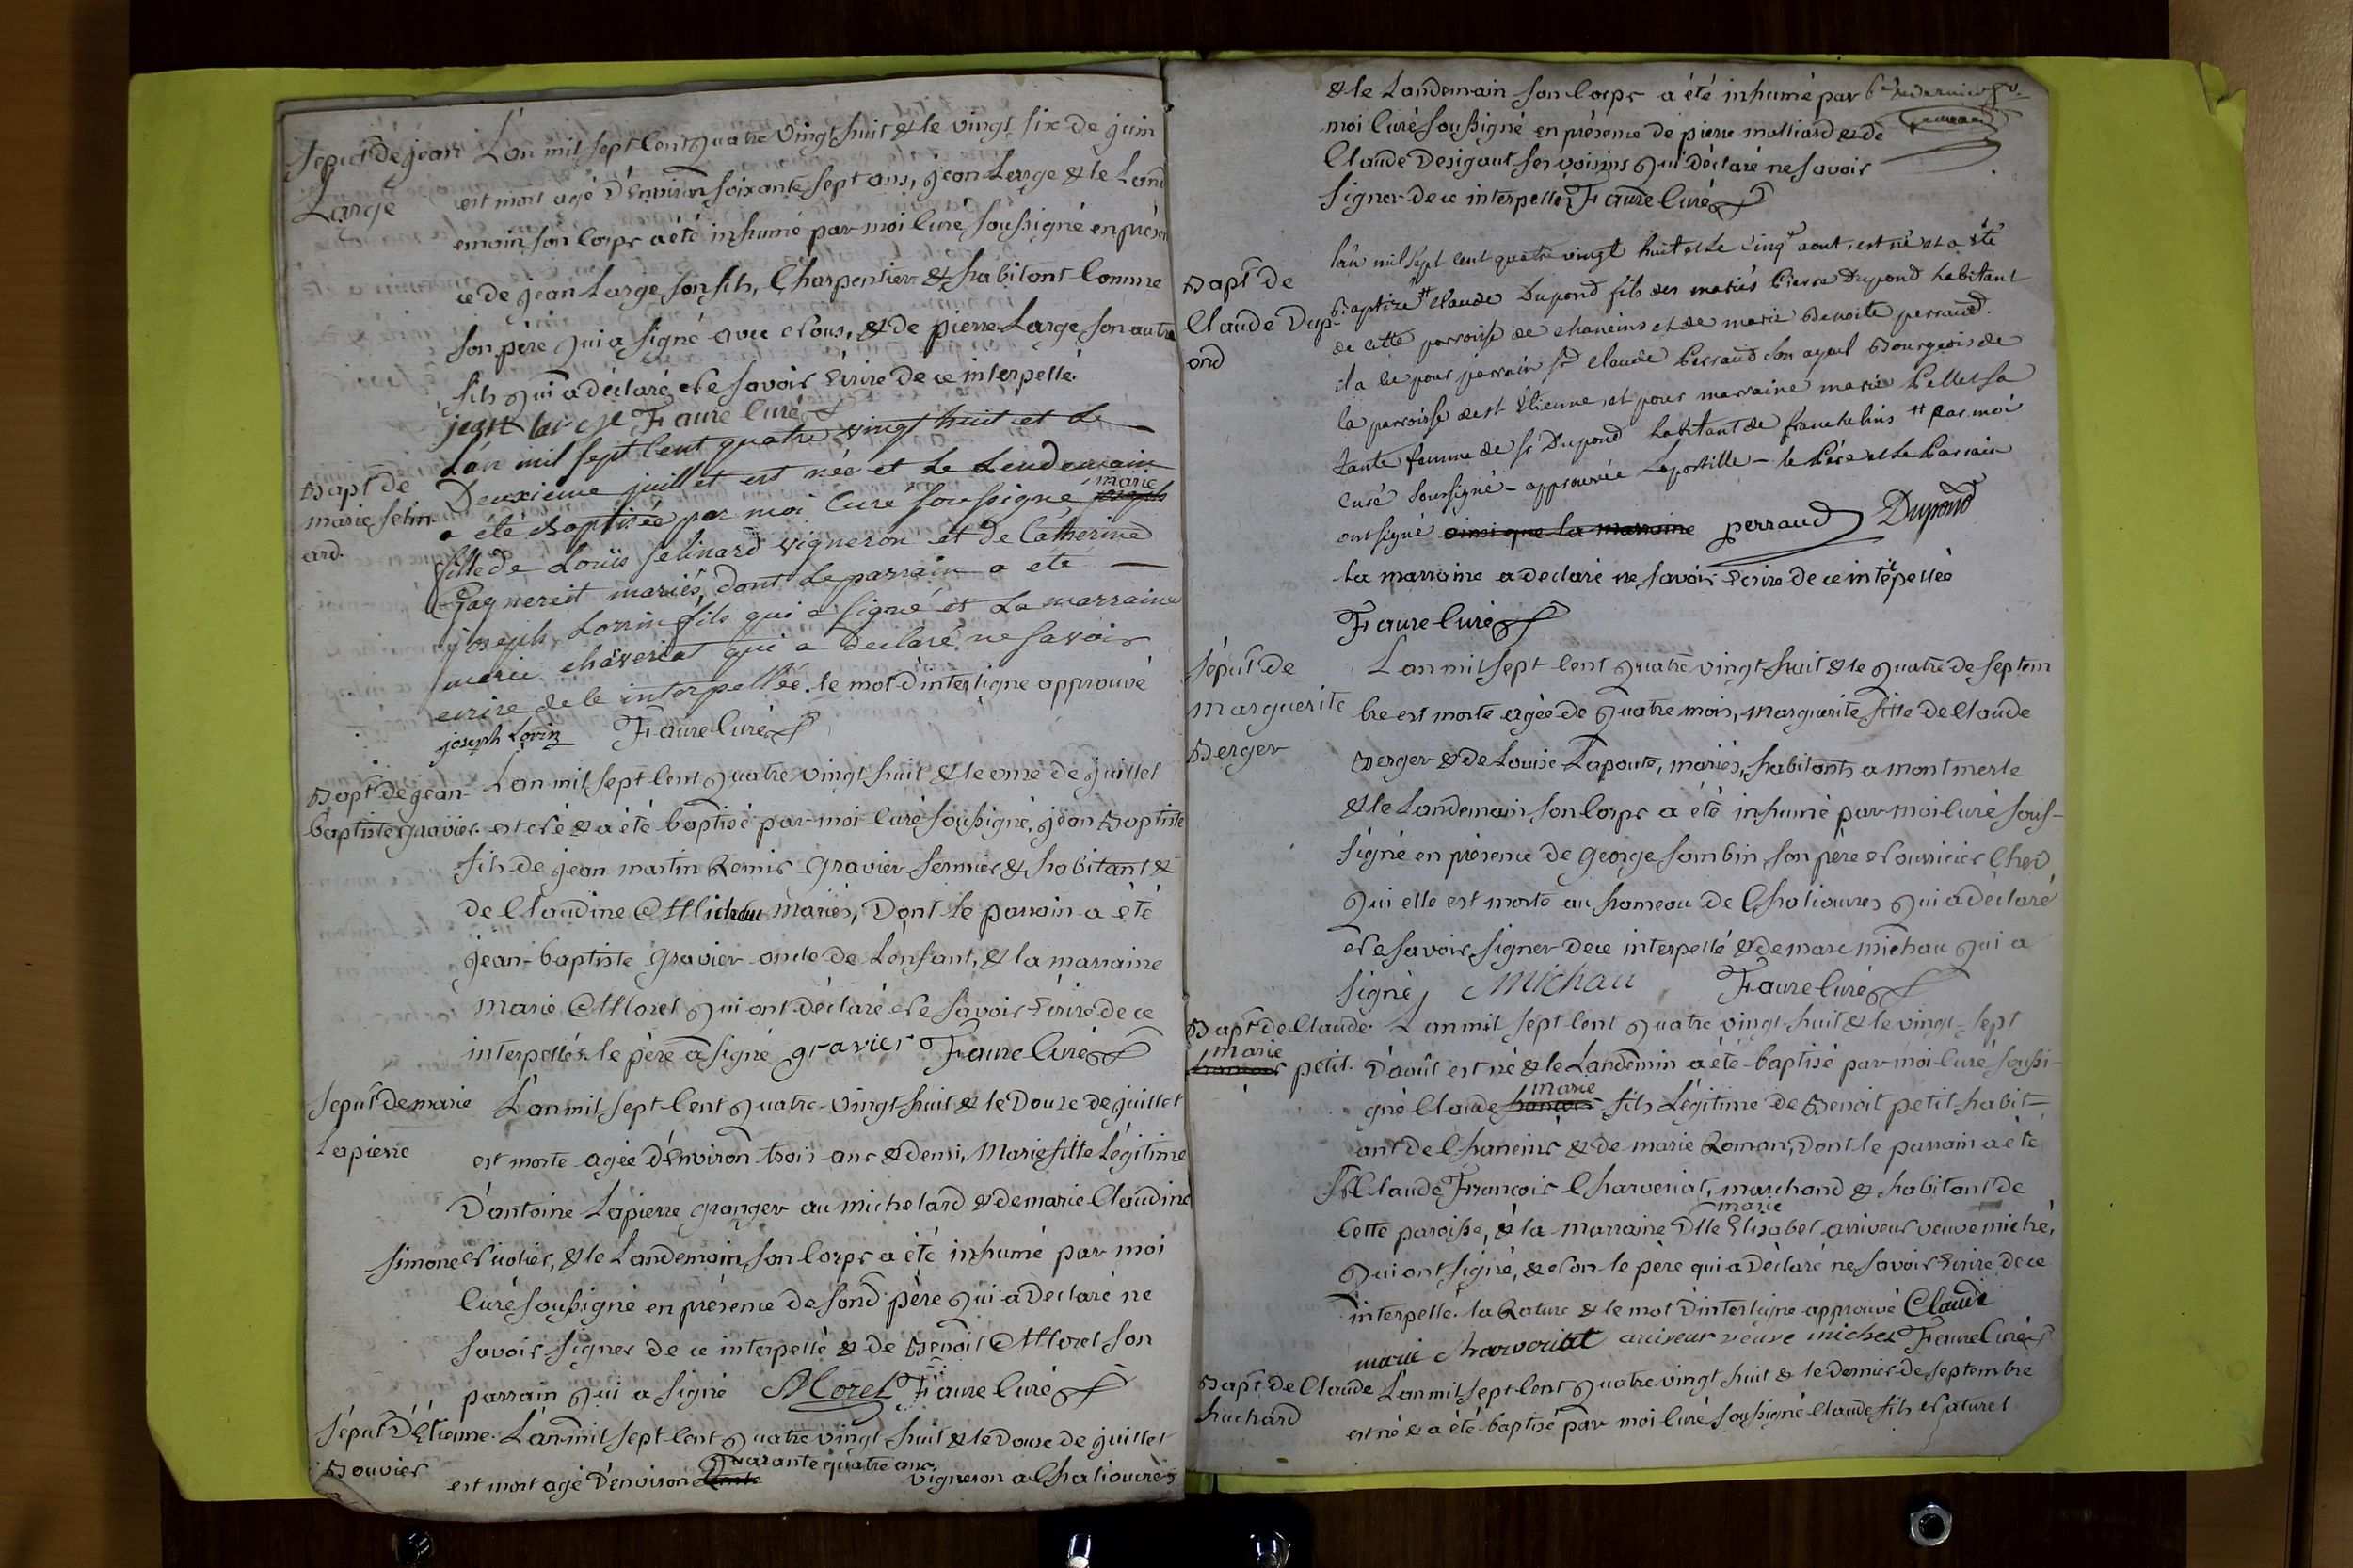 Sepult de jean
Large
L'an mil sept Cent quatre vingt huit & le vingt six de juin
est mort agé d'Environ soixante sept ans, jean Large & le Land
emain son Corps a été inhumé par moi Curé soussigné en présen
ce de jean Large son fils, Charpentier & habitant Comme
son père qui a signé avec Nous, & de pierre Large son autre
fils qui a déclaré Ne savoir Ecrire de ce interpellé.
jean large Faure Curé
Bapt de
marie selin
ard.
L'an mil sept Cent quatre vingt huit et Le
Deuxieme juillet est née et Le Lendemain
a été Baptisée par moi Curé soussigné, marie
fille de Louis selinard vigneron et de Catherine
Gagneret mariés, dont Le parrain a été
joseph Lorin fils qui a signé et La marraine
marie chaveriat qui a declaré ne savoir
ecrire de Ce interpellée. le mot d'interligne approuvé
joseph Lorin Faure Curé
Bapt de jean-
baptiste gravier
L'an mil sept Cent quatre vingt huit & le onze de juillet
est Né & a été baptisé par moi Curé soussigné, jean Baptiste
fils de jean martin Remis gravier fermier & habitant &
de Claudine mariés, Dont Le parrain a été
jean-baptiste gravier oncle de L'enfant, & la marraine
marie Morel qui ont Déclaré Ne savoir Ecrire de ce
interpellés le père a signé gravier Faure Curé
sepult de marie
Lapierre
L'an mil sept Cent quatre-vingt huit & le Douze de juillet
est morte agée d'Environ trois ans & demi, Marie fille Légitime
D'antoine Lapierre granger au michelard & de marie Claudine
simone & le Landemain son Corps a été inhumé par moi
Curé soussigné en présence de sond père qui a Declaré ne
savoir signer de ce interpellé & de Benoit Morel son
parrain qui a signé Morel Faure Curé
sépult D'Etienne
Bouvier
L'an mil sept Cent quatre vingt huit & le Douze de juillet
est mort agé D'environ quarante quatre ans, vigneron a Chaliouvres
& le Landemain son Corps a été inhumé par
moi Curé soussigné en présence de pierre molliard & de
Claude Desigaut ses voisins qui déclaré ne savoir
signer de ce interpellés Faure Curé
Bapt de
Claude Dup-
ond
L'an mil sept cent quatre vingt huit et Le cinq aout, est né et a été
Baptizé # claude Dupond fils des mariés Pierre Dupond habitant
de cette parroisse de chaneins et de marie Benoite perraud.
il a eu pour parrain sr claude Perraud son ayeul Bourgeois de
la parroisse de st Etienne, et pour marraine marie Pellet sa
tante femme de sr Dupond habitant de franchelins # par moi
curé soussigné - approuvée Lapostille - le Père et Le Parrain
ont signé ainsi que la marraine perraud Dupond
La marraine a declaré ne savoir Ecrire de ce interpellée
Faure Curé
sépult de
marguerite
Berger
L'an mil sept Cent quatre vingt huit & le quatre de septem
bre est morte agée de quatre mois, marguerite fille de Claude
Berger & de Louise Lapoute, mariés, habitants a montmerle
& le Landemain son Corps a été inhumé par moi Curé sous-
signé en présence de george sambin son père Nourricier Chez
qui elle est morte au hameau de Chaliouvres qui a déclaré
Ne savoir signer de ce interpellé & de marc michau qui a
signé, Michau Faure Curé
Bapt de Claude
marie petit.
L'an mil sept Cent quatre vingt-huit & le vingt-sept
D'août est né & le Landemin a été baptisé par moi Curé soussi-
gné Claude marie fils Légitime de Benoit petit habit-
ant de Chaneins & de marie Roman, Dont le parrain a été
sr Claude François Charveriat, marchand & habitant de
Cette paroisse, & la marraine Dlle marie Elisabet arriveur veuve miché,
qui ont signé, & Non le père qui a Déclaré ne savoir Ecrire de ce
interpellé. la Rature & le mot D'interligne approuvé Claude
marie charveriat arriveur veuve michet Faure Curé
Bapt de Claude
huchard
L'an mil sept Cent quatre vingt huit & le dernier de septembre
est né & a été baptisé par moi Curé soussigné Claude fils Naturel